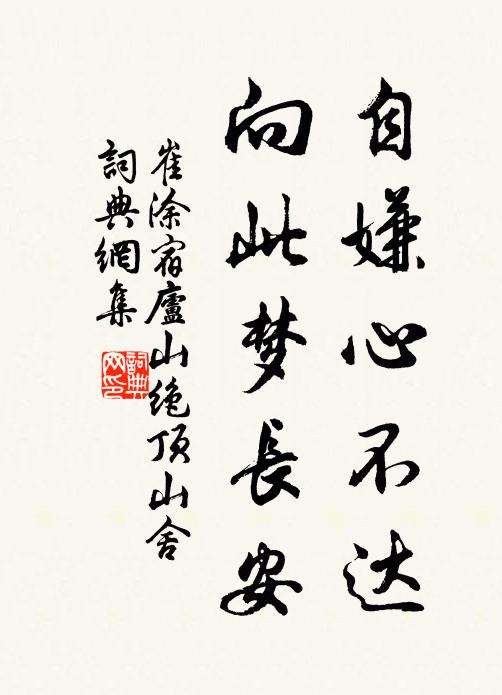 自嫌心不达
向此梦长安
崔涂宿廬山绝顶山舍
詞典網集
詞典网印